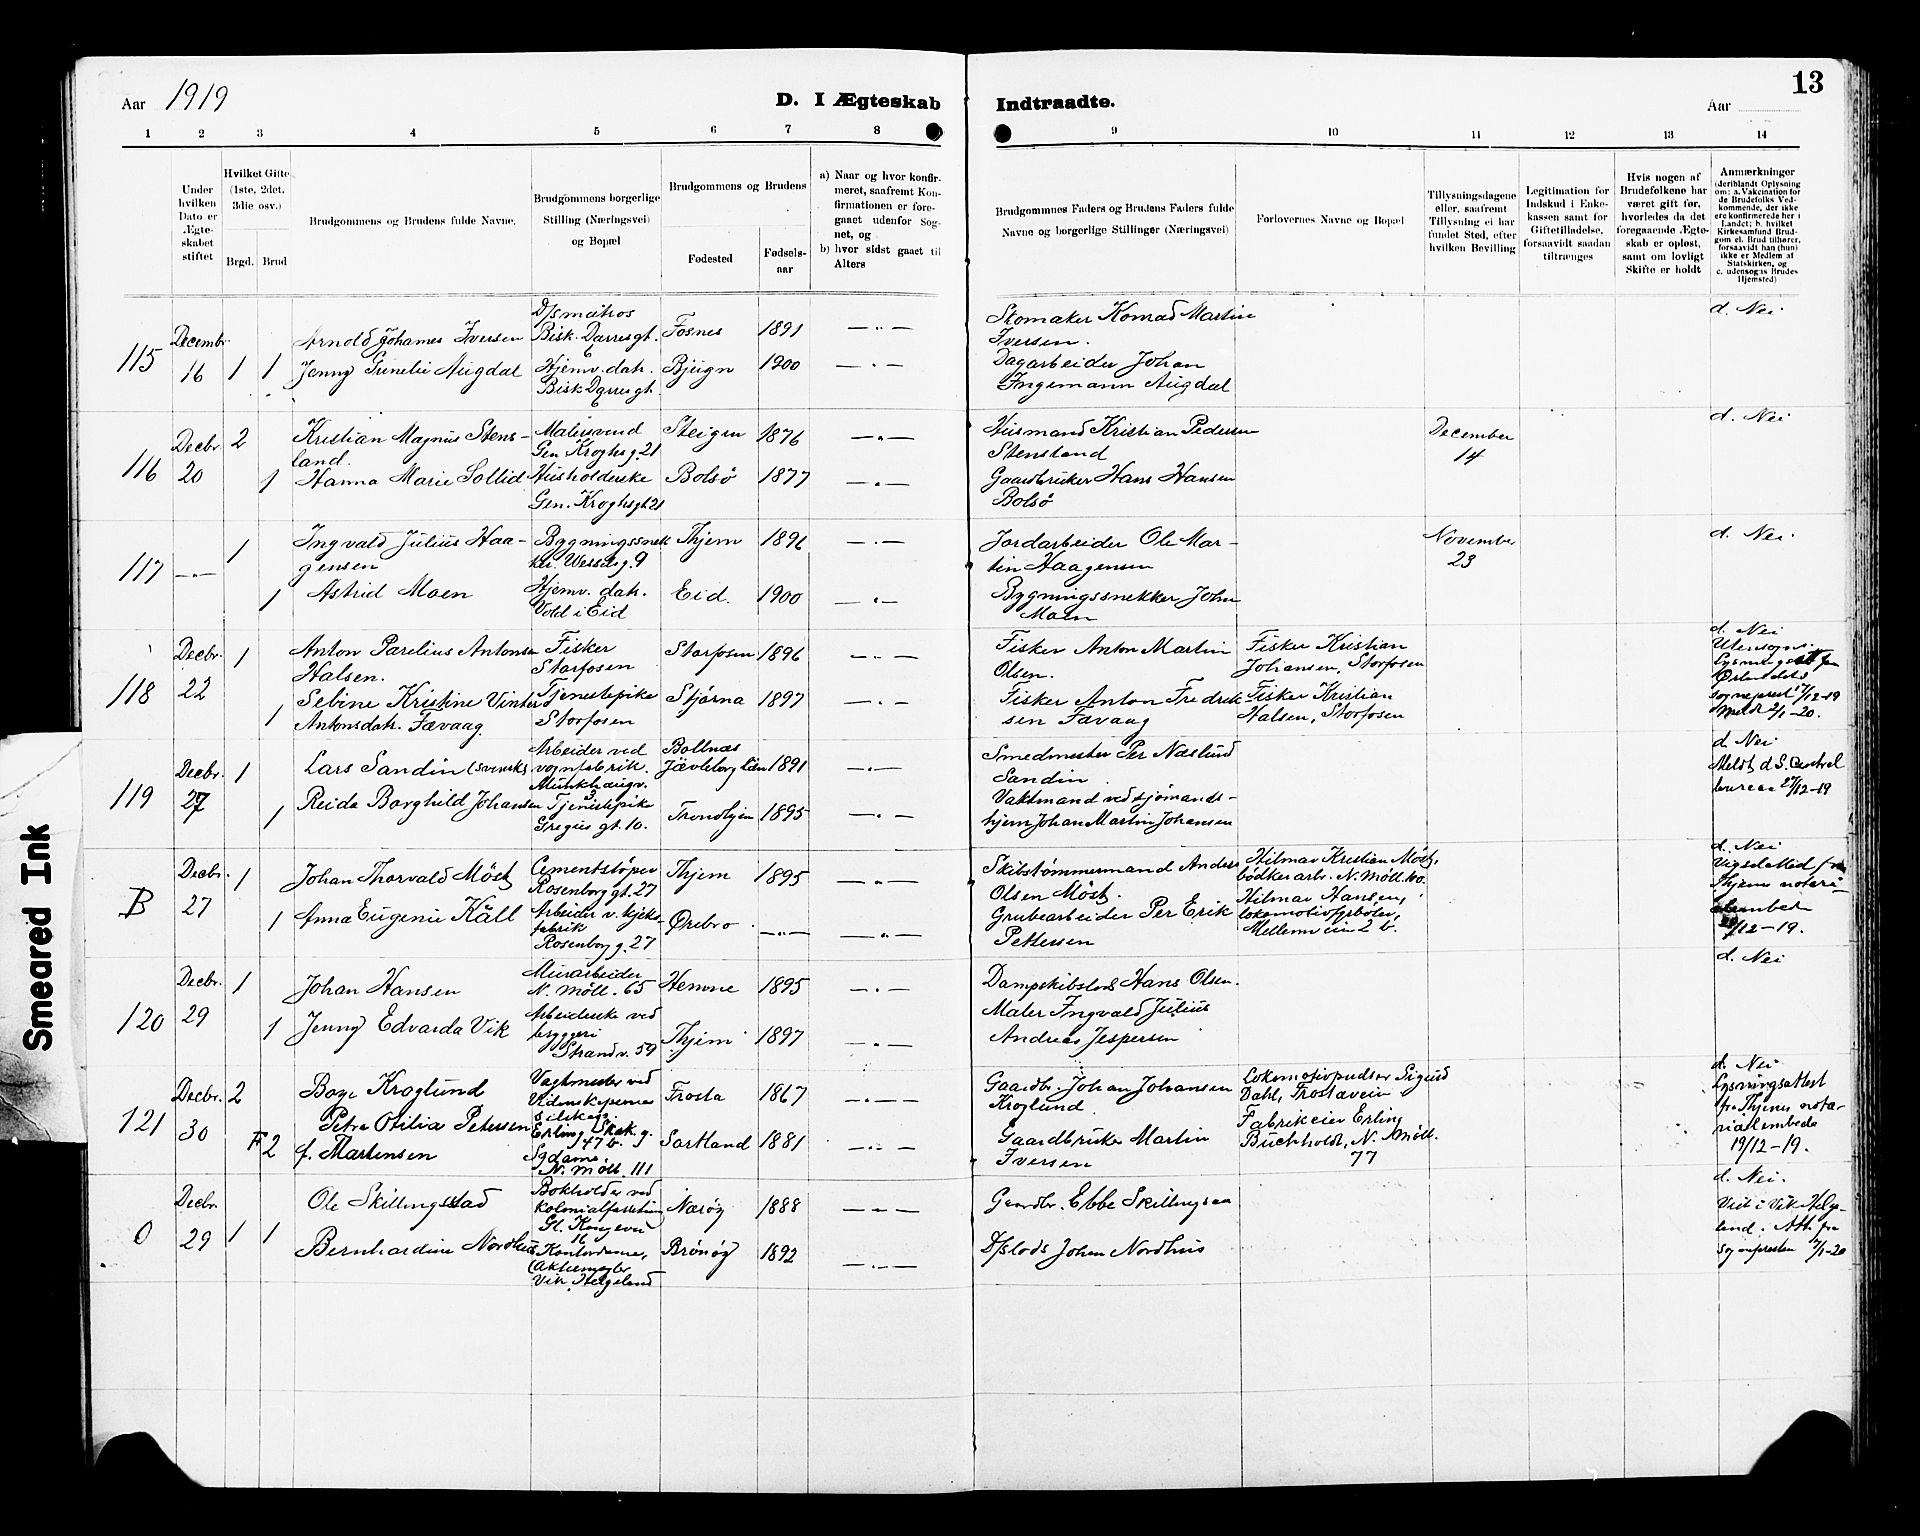 Aar 1919
D. I Ægteskab
Indtraadte.
Aar
13
1 2 3 4 5 6 7 8
9 10 11 12 13 14
Under hvilken Dato er Ægteskabet stiftet
Hvilket Gifte (1ste, 2det, 3die osv.)
Brgd. Brud
Brudgommens og Brudens fulde Navne.
Brudgommens borgerlige Stilling (Næringsvei) og Bopæl
Brudgommens og Brudens
Fødested
Fødselsaar
a) Naar og hvor konfirmeret, saafremt Konfirmationen er foregaaet udenfor Sognet, og
b) hvor sidst gaaet til Alters
Brudgommnes Faders og Brudens Faders fulde Navne og borgerlige Stillinger (Næringsvei)
Forlovernes Navne og Bopæl
Tillysningsdagene eller, saafremt Tillysning ei har fundet Sted, efter hvilken Bevilling
Legitimation for Indskud i Enkekassen samt for Giftetilladelse, forsaavidt saadan tiltrænges
Hvis nogen af Brudefolkene har været gift før, hvorledes da det foregaaende Ægteskab er opløst, samt om lovligt Skifte er holdt
Anmærkninger (deriblandt Oplysning om: a. Vakcination for de Brudefolks Vedkommende, der ikke ere konfirmerede her i Landet; b. hvilket Kirkesamfund Brudgom el. Brud tilhører, forsaavidt han (hun) ikke er Medlem af Statskirken, og c. udensogns Brudes Hjemsted)
115
Decembr. 16
1 1
Arnold Johannes Iversen
D/s matros
Bisk. Darresgt.
Fosnes
1891
Jenny Gunelie Augdal
Hjemv. datr.
Bisk Darresgt.
Bjugn
1900
Skomaker Konrad Martin
Iversen.
Dagarbeider Johan
Ingemann Augdal
d. Nei
116
Decbr. 20
2
Kristian Magnus Stens-
land.
Malersvend
Gen Kroghs g. 21
Steigen
1876
1
Hanna Marie Sollid
Husholderske
Gen. Kroghsgt 21
Bolsø
1877
Husmand Kristian Pedersen
Stensland
Gaardbruker Hans Hansen
Bolsø
December
14
d. Nei
117
1
Ingvald Julius Haa-
gensen
Bygningssnek
ker. Wesselsg. 9
Thjem
1896
1
Astrid Moen
Hjemv. datr.
Vold i Eid
Eid.
1900
Jordarbeider Ole Mar-
tin Haagensen
Bygningssnekker John
Moen
November
23
d. Nei
118
Decbr. 22
1
Anton Parelius Antonsen
Halsen.
Fisker
Storfosen
Storfosen
1896
1
Sebine Kristine Vinter
Antonsdatr. Fævaag.
Tjenestepike
Storfosen
Stjørna
1897
Fisker Anton Martin
Olsen.
Fisker Anton Fredrik
sen Fævaag
Fisker Kristian
Johansen, Storfosen
Fisker Kristian
Halsen, Storfosen
d. Nei
Utensogns.
Lysningsatt fra
Ørlandets
sogneprest 17/12-19
Meldt 2/1-20.
119
Decbr. 27
1
Lars Sandin (svensk)
Arbeider ved
vognfabrik.
Munkhaugv.
3
Bollnäs
Jävleborg län
1891
1
Reida Borghild Johansen
Tjenestepike
Gregus gt. 10.
Trondhjem
1895
Smedmester Per Naslund
Sandin
Vaktmand ved sjømands-
hjem Johan Martin Johansen
d. Nei
Meldt d. S. Centrel
bureau 27/12-19
B
Decbr. 27
1
Johan Thorvald Möst
Cementstøper
Rosenborg gt. 27
Thjem
1895
1
Anna Eugenie Käll
Arbeider v. kjeks-
fabrik
Rosenborg g. 27
Ørebro
Skibstømmermand Anders
Olsen Möst.
Grubearbeider Per Erik
Pettersen
Hilmar Kristian Möst,
bødkerarb. N. Möll. 100.
Hilmar Hansen,
lokomotivfyrbøter,
Mellemveien 2 b.
d. Nei
Vigselatted fra
Thjems notari-
alembede
29/12-19.
120
Decbr. 29
1
Johan Hansen
Murarbeider
N. Möll. 65
Hemne
1895
1
Jenny Edvarda Vik
Arbeiderske ved
bryggeri
Strandv. 59
Thjem
1897
Dampskibslods Hans Olsen.
Maler Ingvald Julius
Andreas Jespersen
d. Nei
121
Decbr. 30
2
Boye Kroglund
Vagtmester ved
Videnskapernes
selskap.
Erling Skak. g.
47 b.
Frosta
1867
F 2
Petra Otilia Petersen
f. Martensen
Sydame,
N. Möll. 111
Sortland
1881
Gaardbr. Johan Johansen
Kroglund.
Gaardbruker Martin
Iversen
Lokomotivpudser Sigurd
Dahl, Frostavein
Fabrikeier Erling
Buchholdt, N. Möll.
77
d. Nei
Lysningsattest
fra Thjems nota-
rialembede
19/12-19.
0
Decbr. 29
1 1
Ole Skillingsstad
Bokholder ved
Kolonialforretning
Gl. Kongevei
16
Nærøy
1888
Bernhardine Nordhus
Kontordame,
Vik, Helgeland
Brønøy
1892
Gaardbr. Ebbe Skillingsaa
D/slods Johan Nordhus
d. Nei.
Viet i Vik Helge-
land. Att. fra
Sognepresten 7/1-20
Smeared Ink